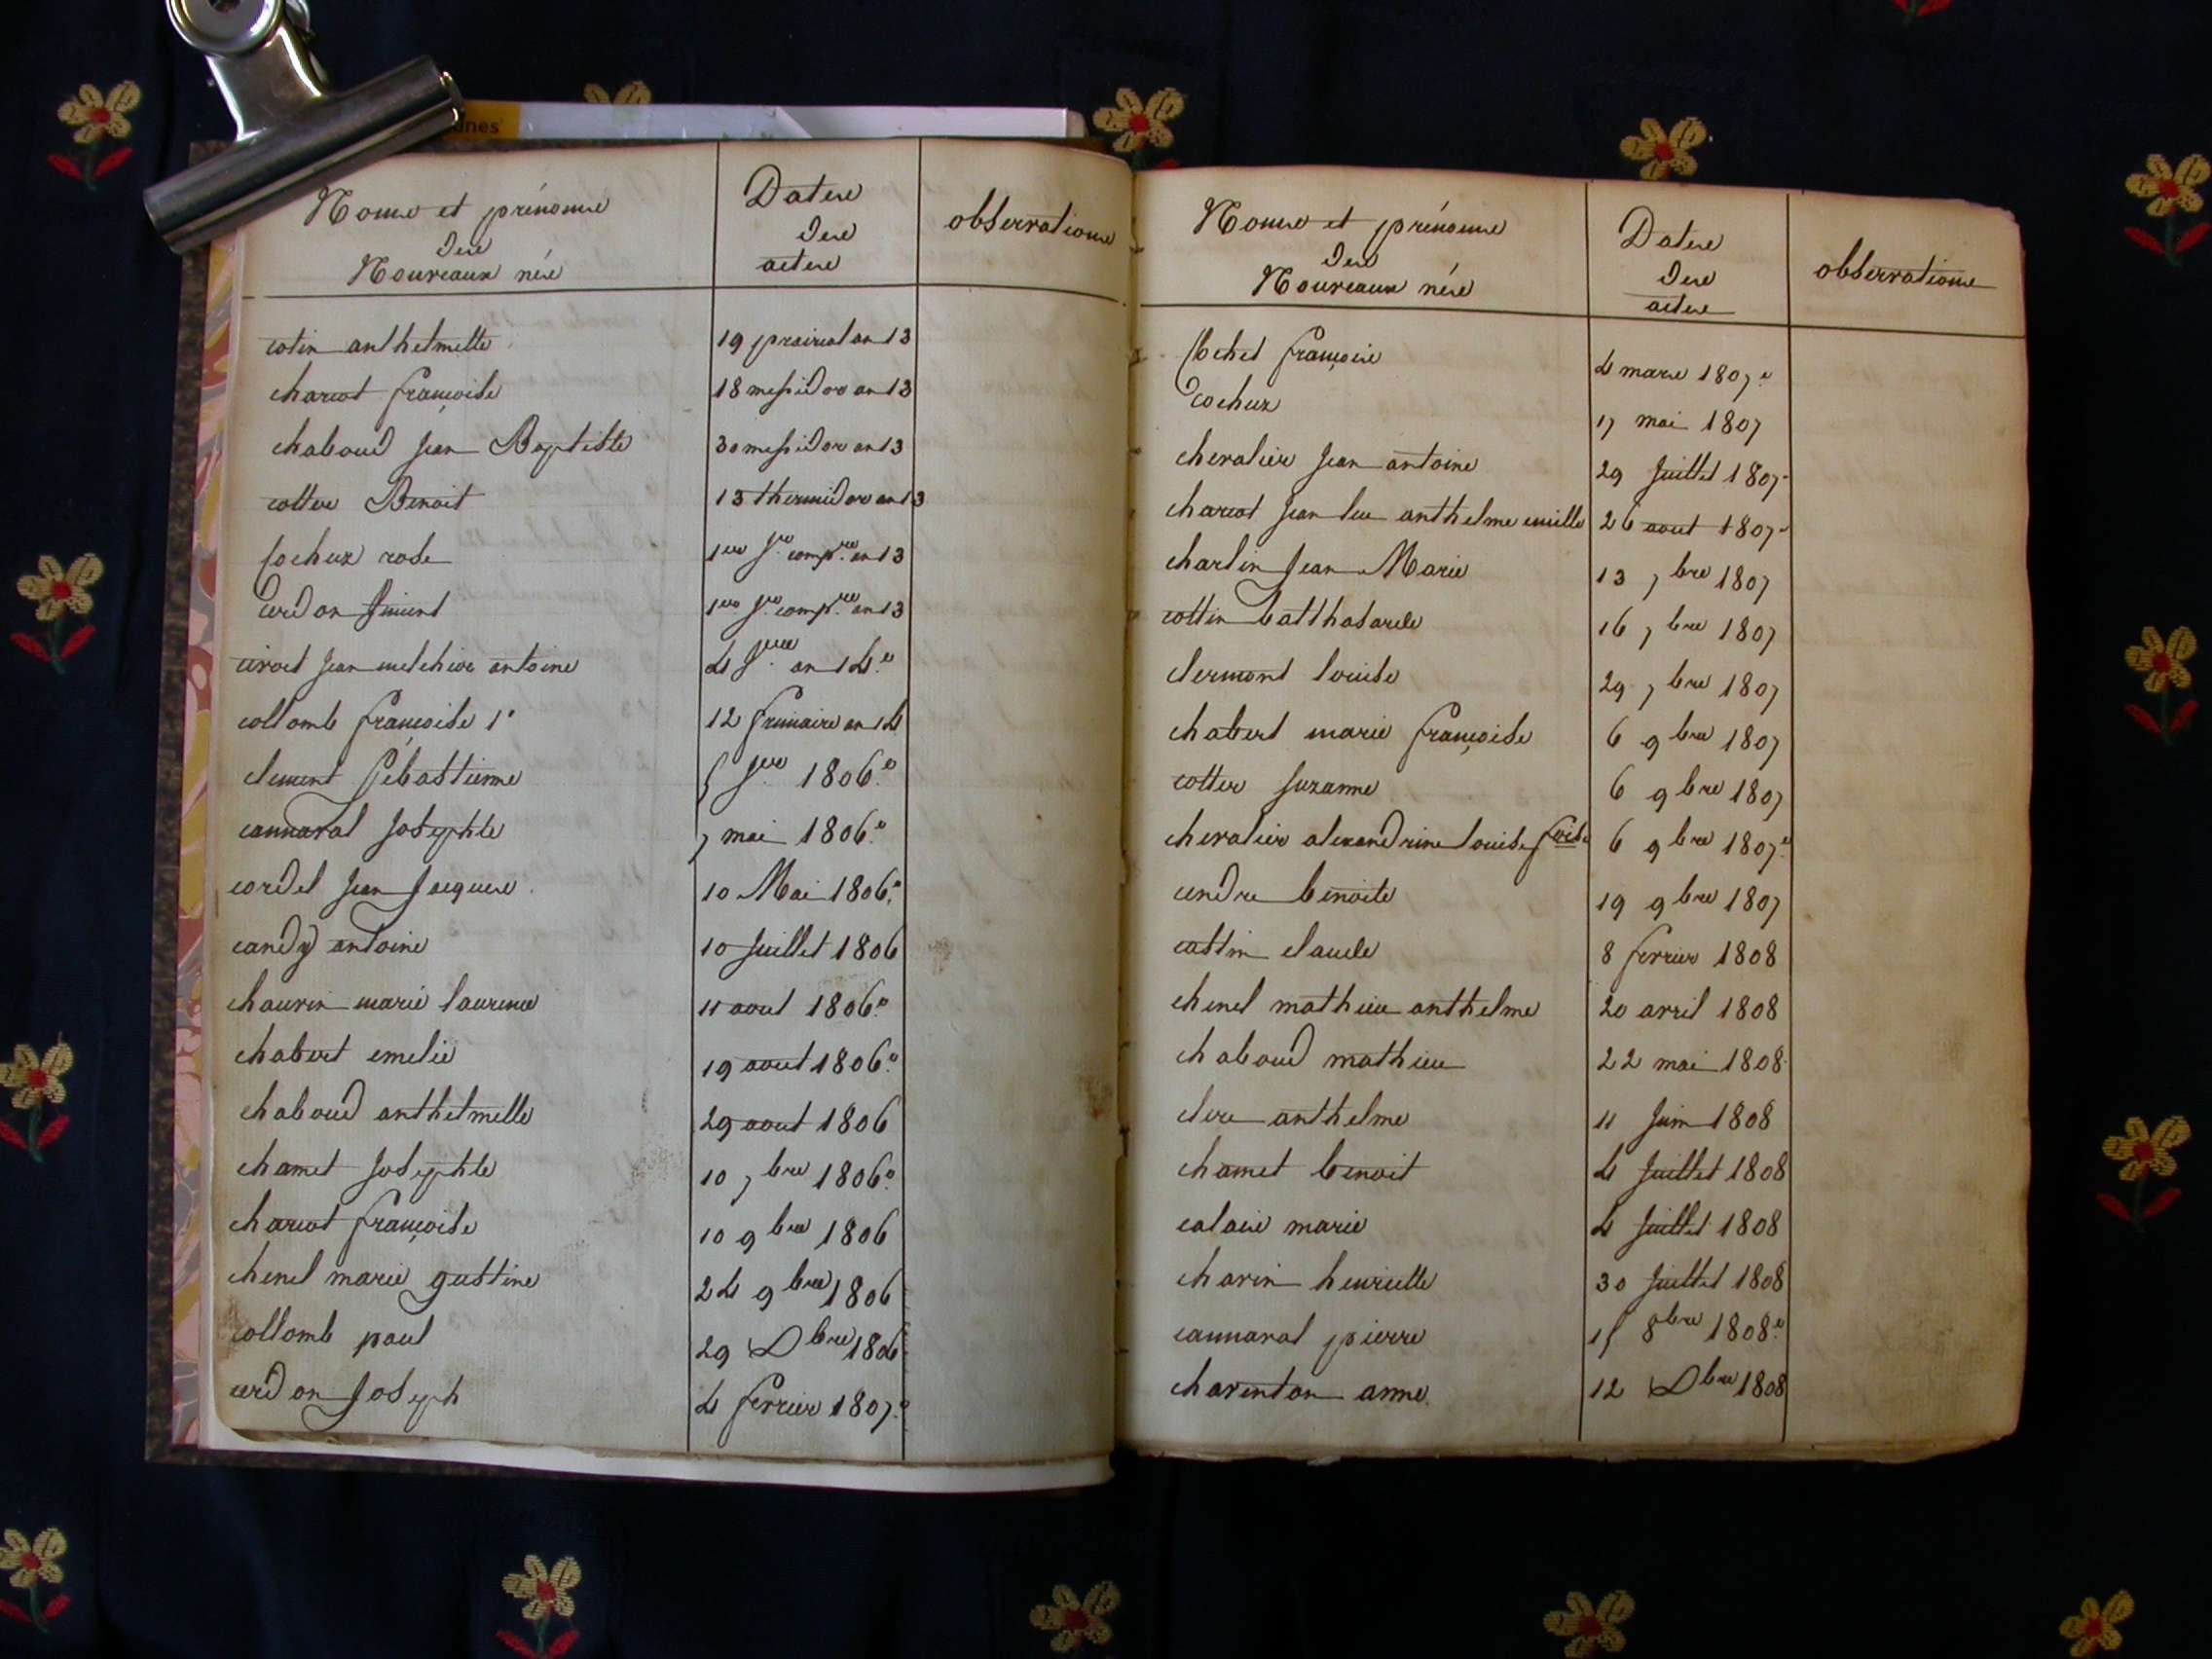 dnes
Noms et prénoms
des
Nouveaux nés
Dates
des
actes
observations
cotin anthelmette 19 prairial an 13
charcot françoise 18 messidor an 13
chaboud jean Baptiste 30 messidor an 13
cotter Benoit 13 thermidor an 13
cochux rose 1er jre compre an 13
cerdon 1er jre compre an 13
civoct jean melchior antoine 4 jer an 14e
collomb françoise 1e 12 frimaire an 14
clement sébastienne 5 jer 1806e
cannaval josephte 7 mai 1806e
cordel jean jacques 10 Mai 1806e
candy antoine 10 juillet 1806
chauvin marie laurence 11 aout 1806e
chabert emelie 19 aout 1806e
chaboud anthelmette 29 aout 1806
chamet josephte 10 7bre 1806e
charcot françoise 10 9bre 1806
chenel marie gustine 24 9bre 1806
collomb paul 29 Dbre 1806
cerdon joseph 4 fevrier 1807e
Noms et prénoms
des
Nouveaux nés
Dates
des
actes
observations
cochet françoise 4 mars 1807e
cochux 17 mai 1807
chevalier jean antoine 29 juillet 1807
charcot jean luc anthelme emille 26 aout 1807
charlin jean Marie 13 7bre 1807
cottin balthasarde 16 7bre 1807
clermont louise 29 7bre 1807
chabert marie françoise 6 9bre 1807
cotter suzanne 6 9bre 1807
chevalier alexandrine louise foise 6 9bre 1807e
cendre benoite 19 9bre 1807
castin claude 8 fevrier 1808
chenel mathieu anthelme 20 avril 1808
chaboud mathieu 22 mai 1808
clerc anthelme 11 juin 1808
chamet benoit 4 juillet 1808
calacie marie 4 juillet 1808
charin henriette 30 juillet 1808
cannaval pierre 15 8bre 1808e
charenton anne 12 Dbre 1808